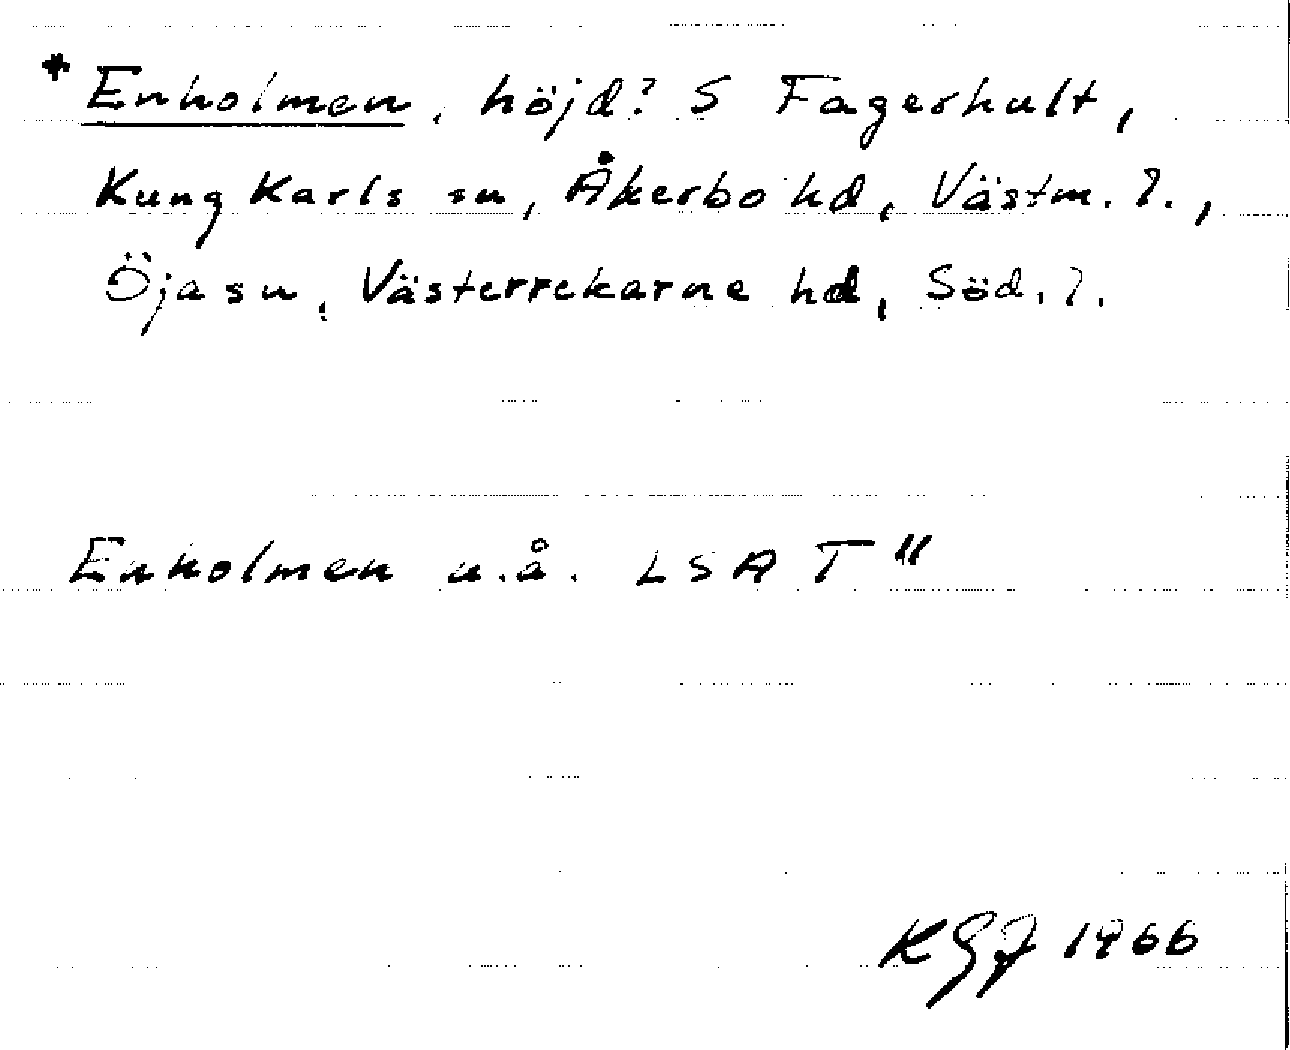 * Enholmen, höjd? S Fagerhult,
Kung Karls sn, Åkerbo hd, Västm. ?.,
Öja sn, Västerrekarne hd, Söd. ?.
Enholmen u.å. LSA T"
KGJ 1966